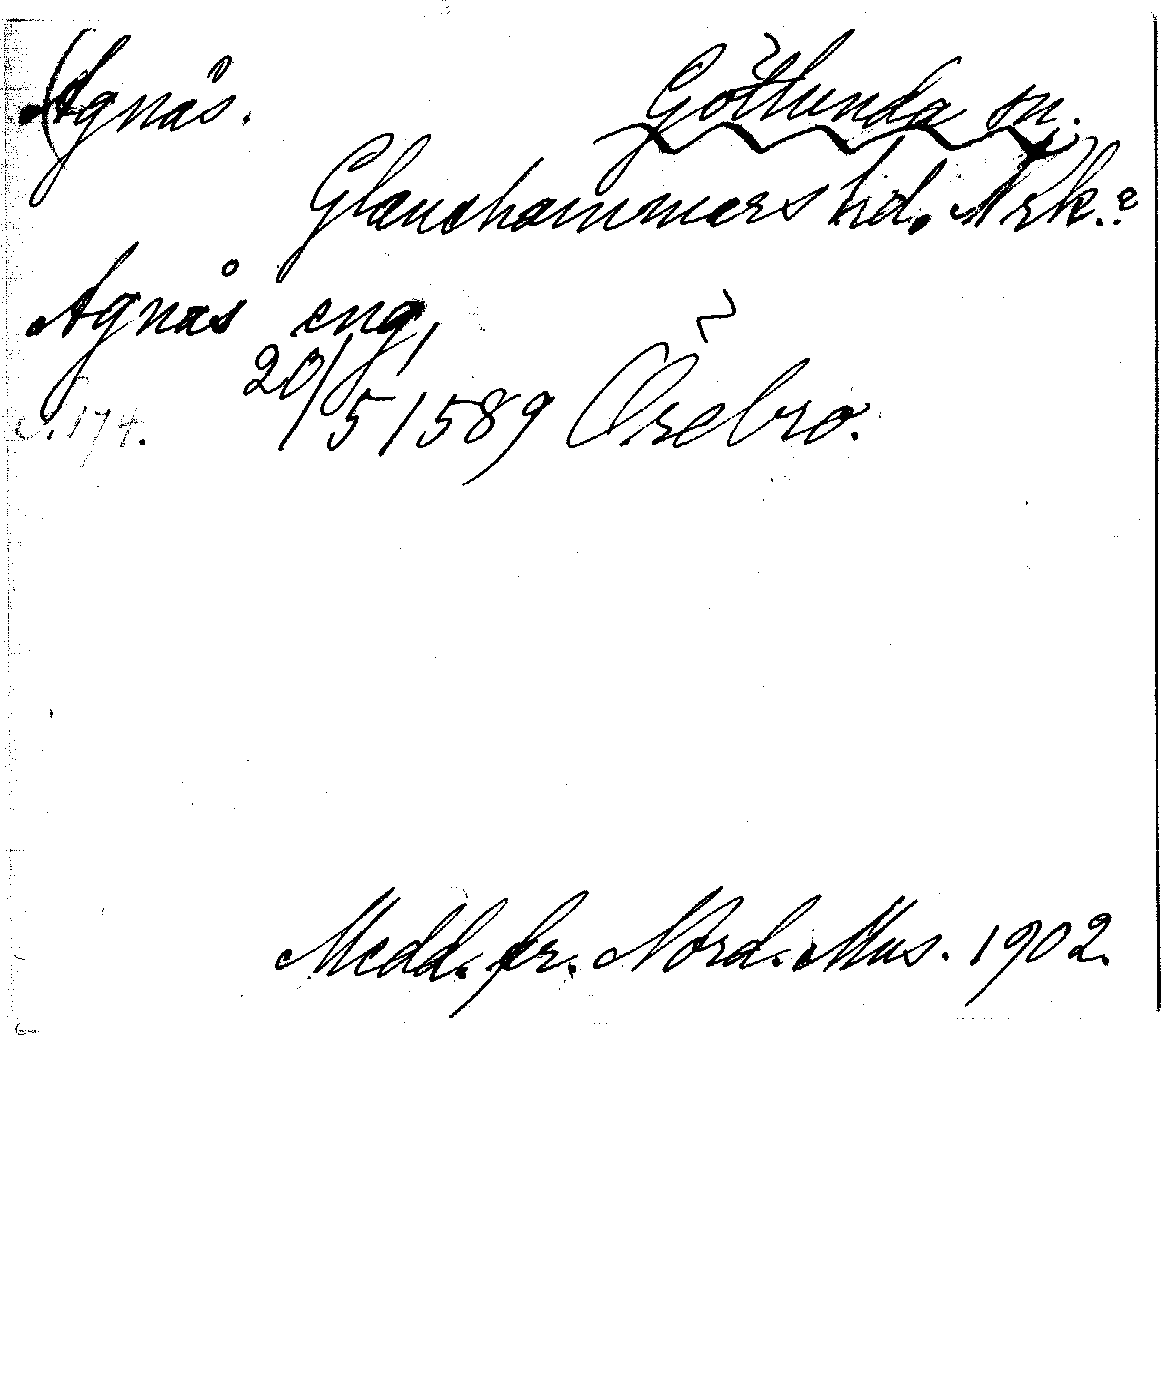 (Agnås. Götlunda sn.
Glanshammers hd. Nrk.?
Agnås eng,
20/5 1589 Örebro.
s. 174.
Medd. fr. Nord. Mus. 1902.